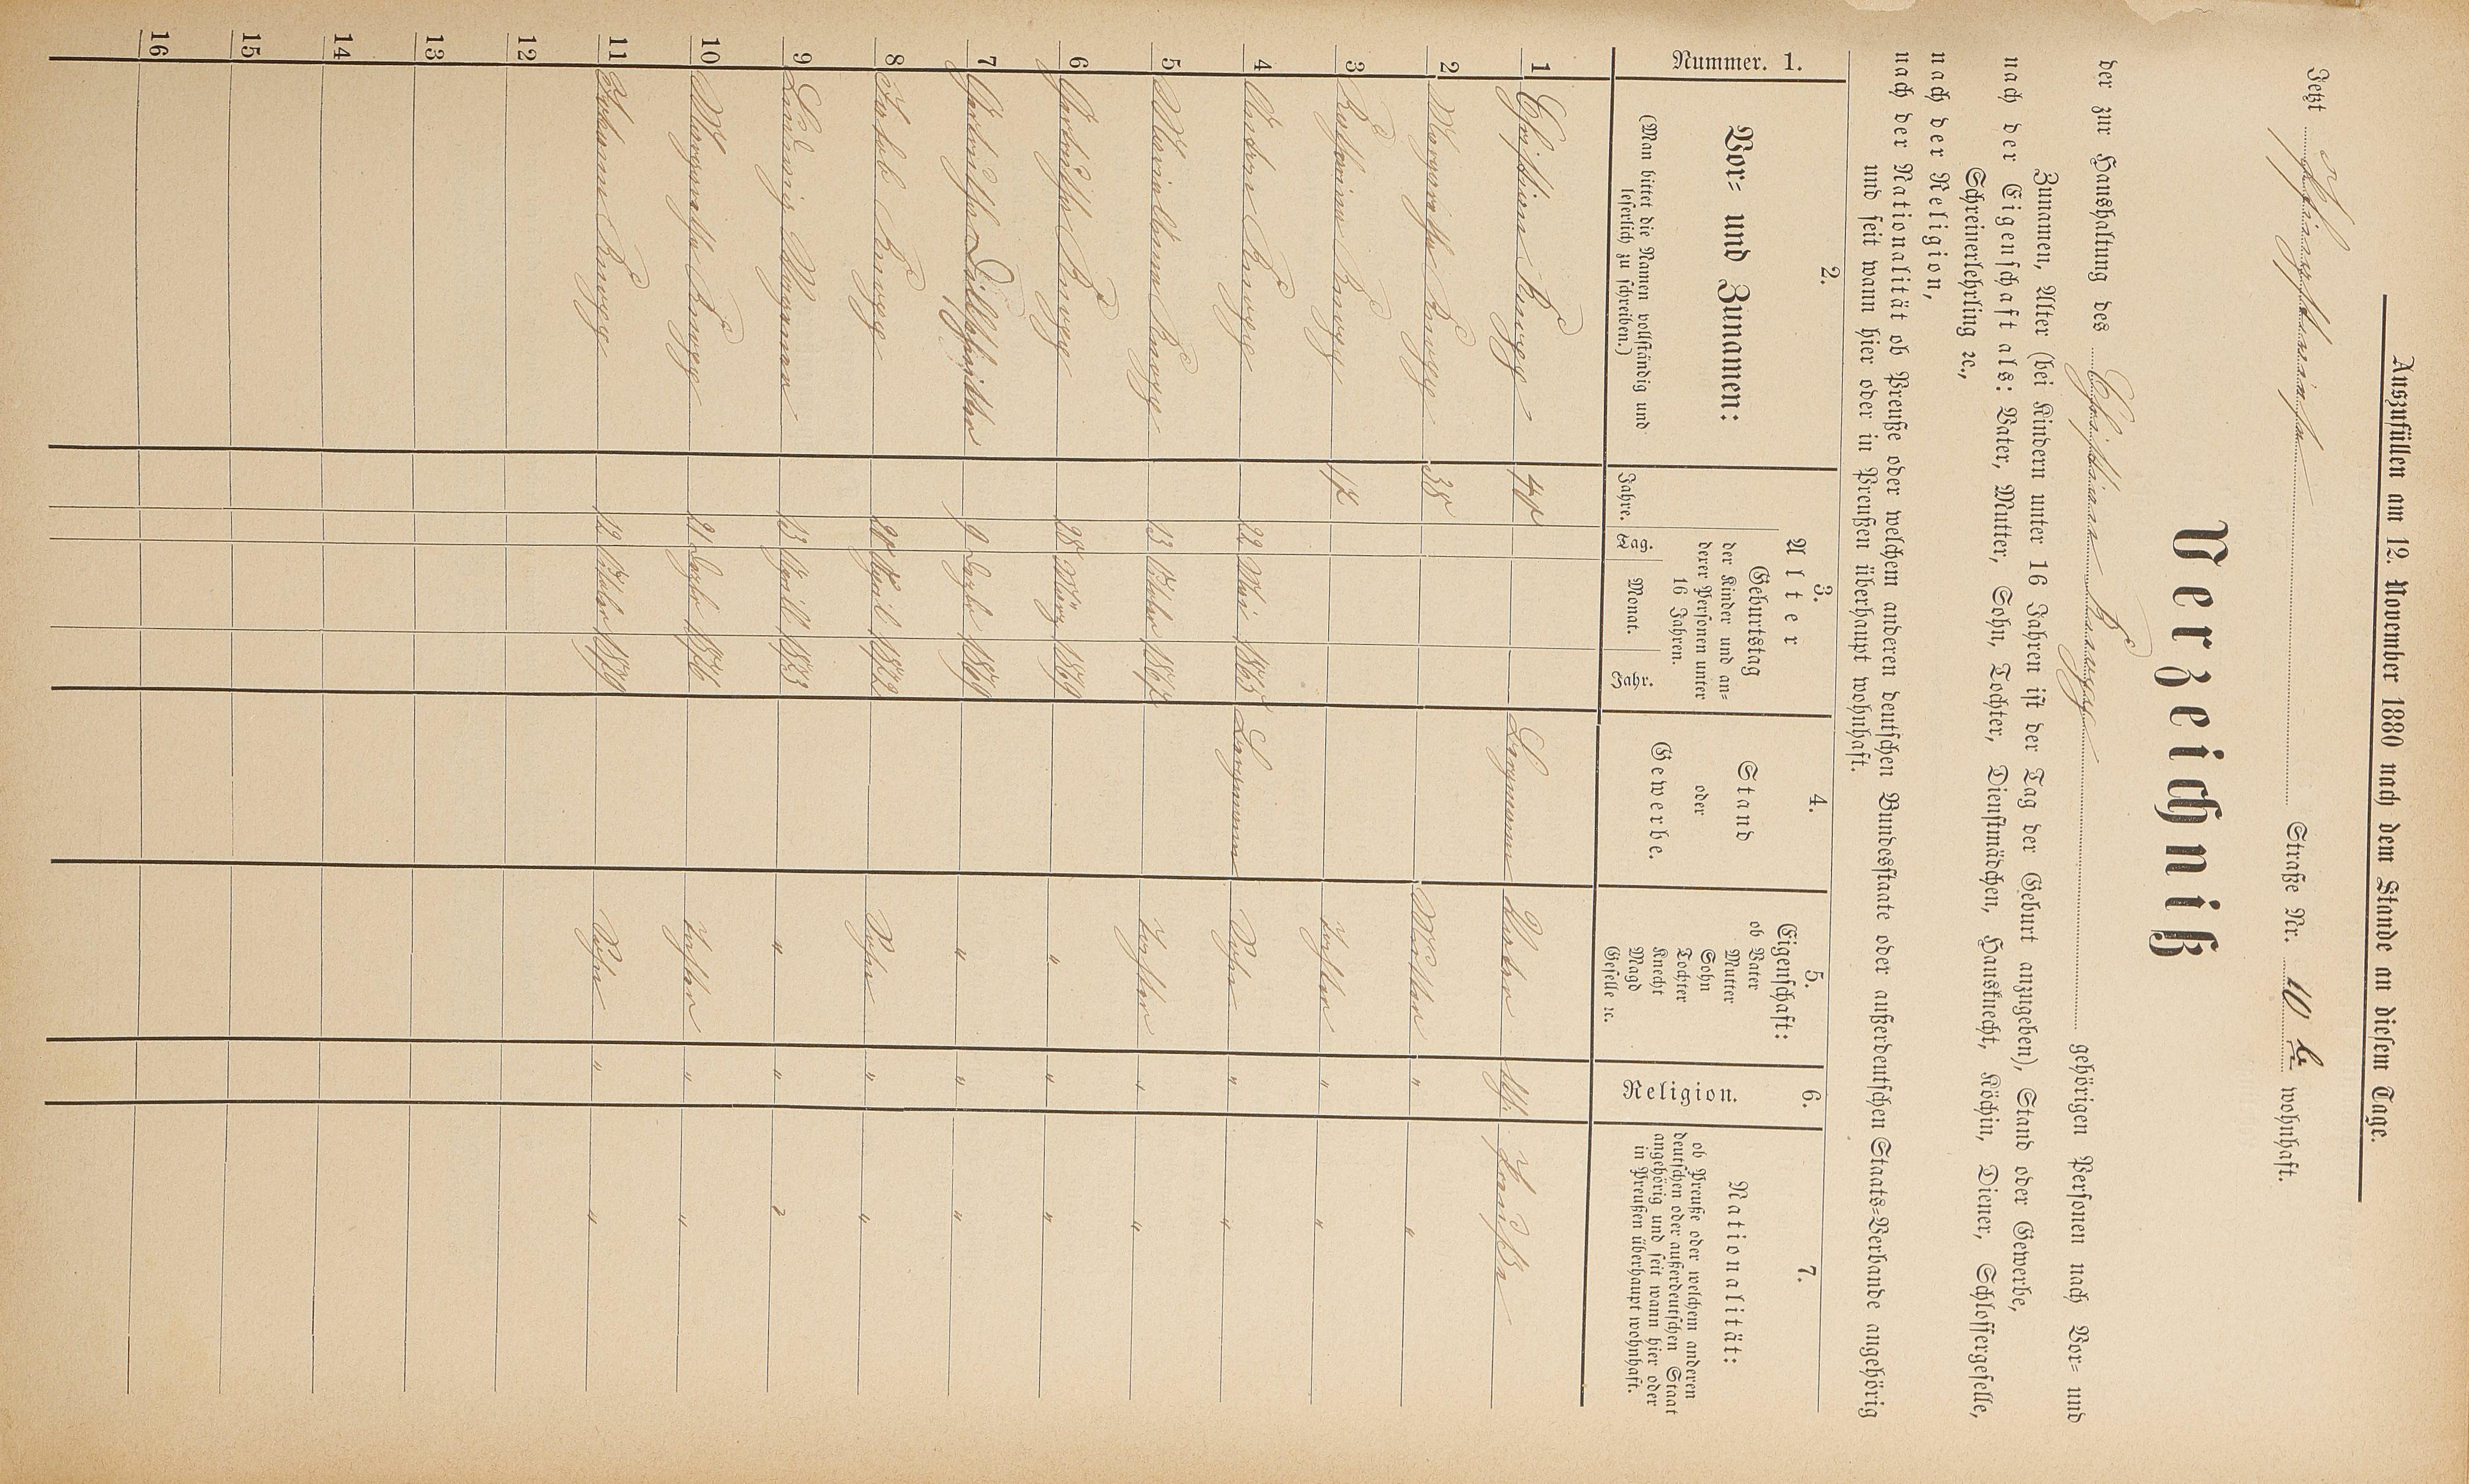 Auszufüllen am 12. November 1880 nach dem Stande an diesem Tage.
Jetzt Straße Nr. 10 b wohnhaft.
Verzeichniß
der zur Haushaltung des Christian Knugg gehörigen Personen nach Vor- und
Zunamen, Alter (bei Kindern unter 16 Jahren ist der Tag der Geburt anzugeben), Stand oder Gewerbe,
nach der Eigenschaft als: Vater, Mutter, Sohn, Tochter, Dienstmädchen, Hausknecht, Köchin, Diener, Schlossergeselle,
Schreinerlehrling ꝛc.,
nach der Religion,
nach der Nationalität ob Preuße oder welchem anderen deutschen Bundesstaate oder außerdeutschen Staats-Verbande angehörig
und seit wann hier oder in Preußen überhaupt wohnhaft.
1. Nummer.
2. Vor- und Zunamen:
(Man bittet die Namen vollständig und
leserlich zu schreiben.)
3. Alter
Jahre.
Geburtstag
der Kinder und an-
derer Personen unter
16 Jahren.
Tag. Monat. Jahr.
4. Stand
oder
Gewerbe.
5. Eigenschaft:
ob Vater
Mutter
Sohn
Tochter
Knecht
Magd
Geselle ꝛc.
6. Religion.
7. Nationalität:
ob Preuße oder welchem anderen
deutschen oder außerdeutschen Staat
angehörig und seit wann hier oder
in Preußen überhaupt wohnhaft.
1 Christian Knugg 44 Bergmann Vater Preuße
2 Margarethe Knugg 38 Mutter " "
3 Katharina Knugg 17 Tochter " "
4 Knugg 22 Mai 1865 Bergmann Sohn " "
5 Knugg 13 1867 Tochter " "
6 Gertrudha Knugg 28 März 1869 " " "
7 9 Dezbr 1869 " " "
8 Jakob Knugg 20 April 1872 Sohn " "
9 Ludwig Wagner 13 Aprill 1873 " " "
10 Margaretha Knugg 21 Dezbr 1876 Tochter " "
11 Johann Knugg 12 1879 Sohn " "
12
13
14
15
16